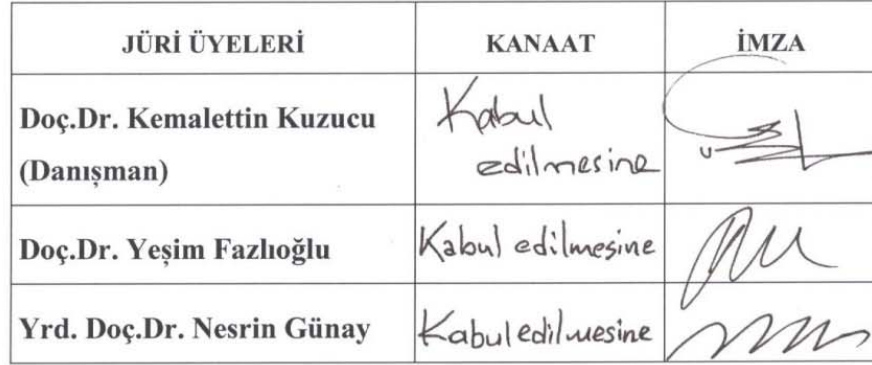 JÜRİ ÜYELERİ KANAAT İMZA
Doç.Dr. Kemalettin Kuzucu
(Danışman)
Kabul
edilmesine
Doç.Dr. Yeşim Fazlıoğlu Kabul edilmesine
Yrd. Doç.Dr. Nesrin Günay Kabul edilmesine